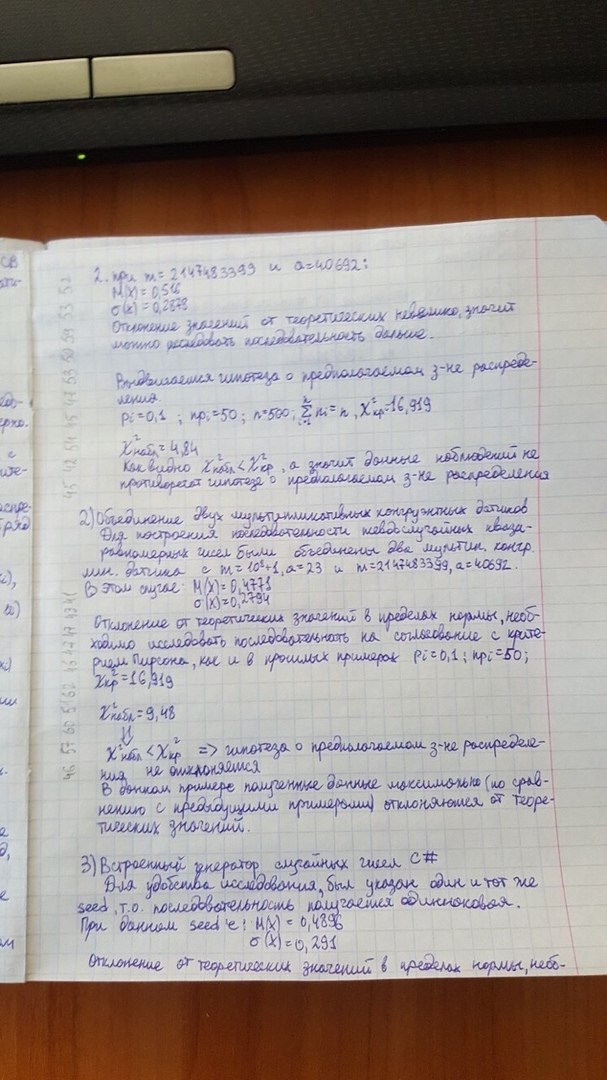 2. при m = 2147483399 и a=40692:
M(x) = 0,516
σ(x) = 0,2878
Отклонение значений от теоретических невелико, значит
можно исследовать последовательность дальше.
Выдвигается гипотеза о предполагаемом з-не распреде-
ления.
pi=0,1 ; npi=50 ; n=500; Σ ni = n, X²кр=16,919
X²набл = 4,84
Как видно X²набл < X²кр, а значит данные наблюдений не
противоречат гипотезе о предполагаемом з-не распределения
2) Объединение двух мультипликативных конгруэнтных датчиков
Для построения последовательности псевдослучайных квази-
равномерных чисел были объединены два мультип. конгр.
датчика с m = 10⁸+1, a=23 и m=2147483399, a=40692.
В этом случае: M(x) = 0,4771
σ(x) = 0,2794
Отклонение от теоретических значений в пределах нормы, необ-
ходимо исследовать последовательность на согласование с крите-
рием Пирсона, как и в прошлых примерах pi=0,1; npi=50;
X²кр=16,919
X²набл = 9,48
⇓
X²набл < X²кр => гипотеза о предполагаемом з-не распределе-
ния не отклоняется
В данном примере полученные данные максимально (по срав-
нению с предыдущими примерами) отклоняются от теоре-
тических значений.
3) Встроенный генератор случайных чисел C#
Для удобства исследования, был указан один и тот же
seed, т.о. последовательность получается одинаковая.
При данном seed'е: M(x) = 0,4896
σ(x) = 0,291
Отклонение от теоретических значений в пределах нормы, необ-